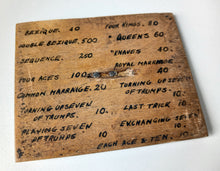 BEZIQUE. 40
DOUBLE BEZIQUE. 500
SEQUENCE. 250
FOUR ACES 100
COMMON MARRAIGE. 20
TURNING UP SEVEN
OF TRUMPS. 10.
PLAYING SEVEN
OF TRUMPS 10
FOUR KINGS. 80
" QUEENS 60
" KNAVES 40.
ROYAL MARRAIGE
40
TURNING UP SEVEN
OF TRUMPS. 10.
LAST TRICK 10.
EXCHANGING SEVEN
10.
EACH ACE & TEN 10